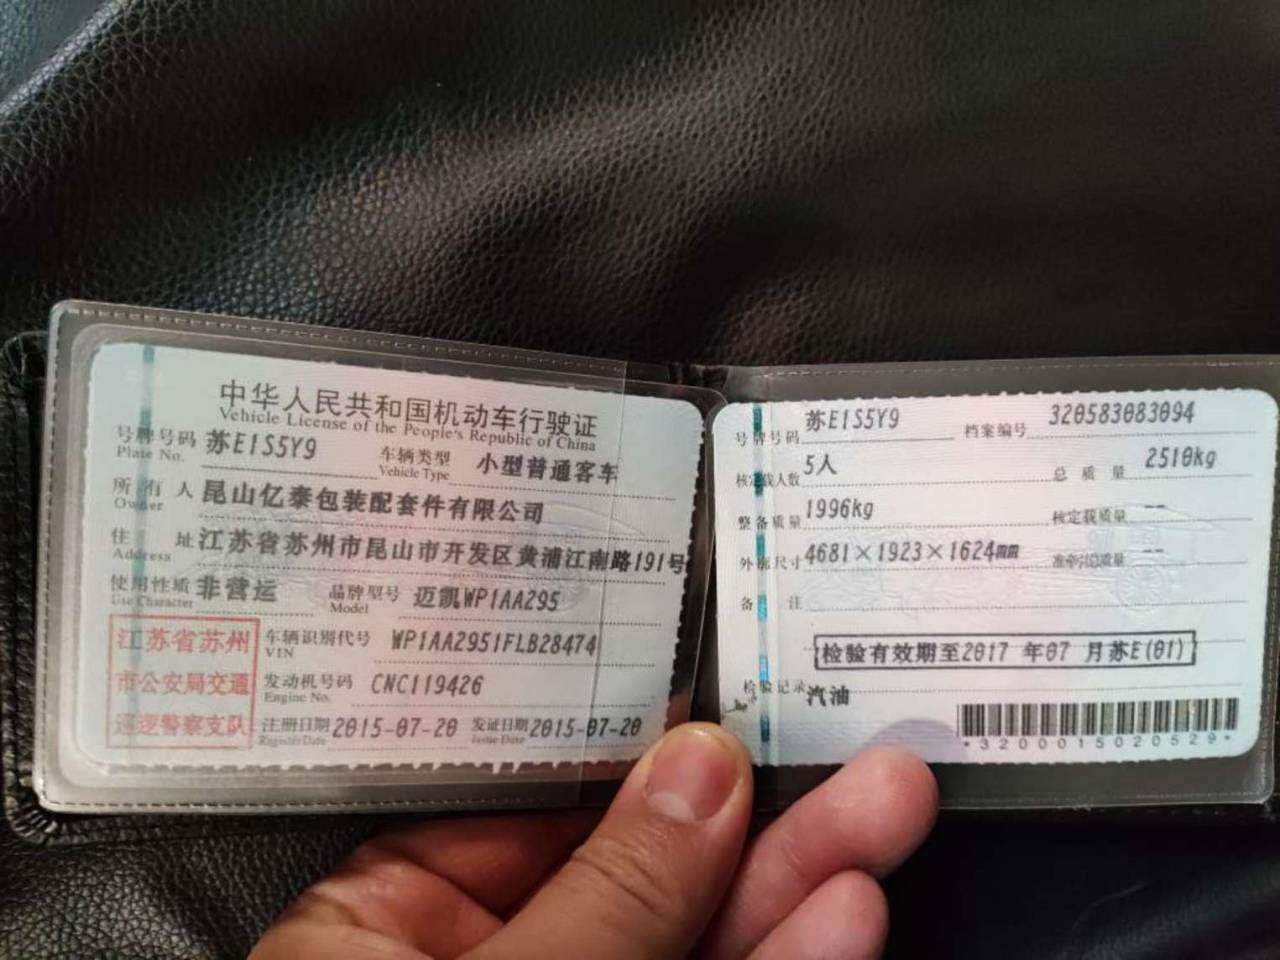 中华人民共和国机动车行驶证
Vehicle License of the People's Republic of China
号牌号码 苏E1S5Y9 车辆类型 小型普通客车
Plate No. Vehicle Type
所有人 昆山亿泰包装配套件有限公司
Owner
住址 江苏省苏州市昆山市开发区黄浦江南路191号
Address
使用性质 非营运 品牌型号 迈凯WP1AA295
Use Character Model
江苏省苏州
市公安局交通
巡逻警察支队
车辆识别代号 WP1AA2951FLB28474
VIN
发动机号码 CNC119426
Engine No.
注册日期 2015-07-20 发证日期 2015-07-20
Register Date Issue Date
号牌号码 苏E1S5Y9 档案编号 320583083094
核定载人数 5人 总质量 2510kg
整备质量 1996kg 核定载质量 --
外廓尺寸 4681×1923×1624mm 准牵引总质量 --
备注
检验有效期至2017 年07 月苏E(01)
检验记录 汽油
*3200015020529*